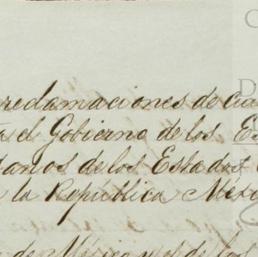 reclamaciones de ciu
el Gobierno de los Es
danos de los Estados
a la República Mexi
de México y de los